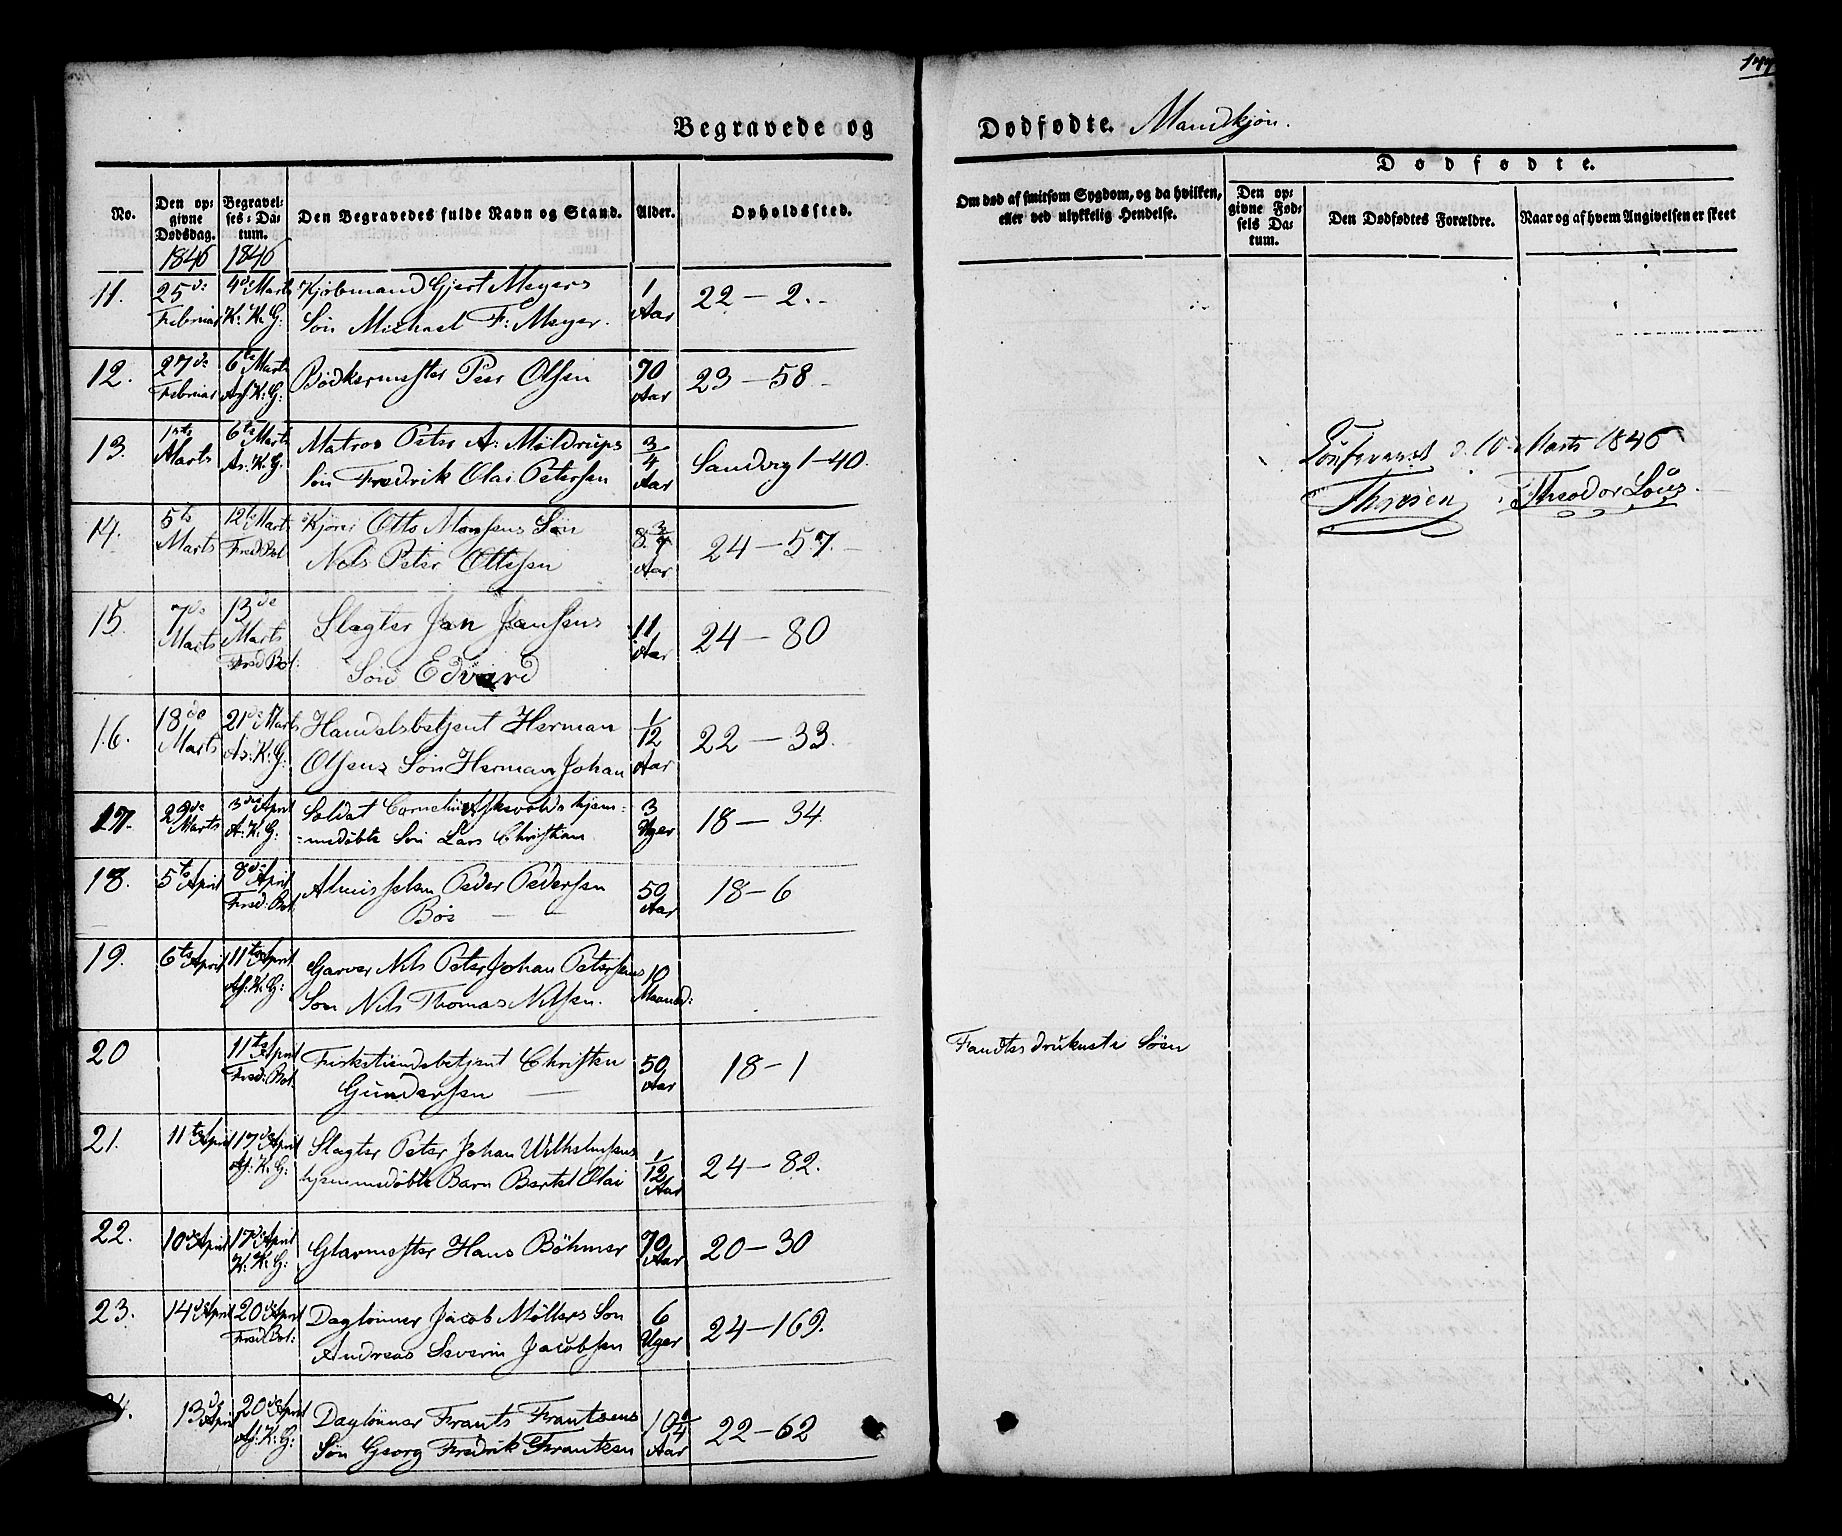 177
Begravede og
Dødfødte. Mandkjøn.
No.
Den opgivne Dødsdag.
Begravelses-Datum.
Den Begravedes fulde Navn og Stand.
Alder.
Opholdssted.
Om død af smitsom Sygdom, og da hvilken, eller ved ulykkelig Hendelse.
Dødfødte.
Den opgivne Fødsels Datum.
Den Dødfødtes Forældre.
Naar og af hvem Angivelsen er skeet
1846 1846
11. 25de Februar 4de Marts K: K: G: Kjøbmand Gjert Meyers 1 Aar 22 – 2.
Søn Michael F: Meyer.
12. 27de Februar 6te Marts Af: K: G: Bødkermester Peer Olsen 70 Aar 23 – 58
13. 1ste Marts 6te Marts As: K: G: Matros Peter A: Møldrups 3/4 Aar Sandvig 1–40.
Søn Fredrik Olai Petersen
14. 5te Marts 12te Marts Fred: Bol Kjøri Otto Monsens Søn 8 3/4 Aar 24 – 57.
Nels Peter Ottesen
Confereret d. 10de Marts 1846
Thorsen Theodor Løus
15. 7de Marts 13de Marts Fred Bol: Slagter Jan Jansens 11 Aar 24 – 80
Søn Edvard
16. 18de Marts 21de Marts As: K: G: Handelsbetjent Herman 1/12 Aar 22 – 33.
Olsens Søn Herman Johan
17. 29de Marts 3die April A: K: G: Soldat Cornelius Askevolds hjem= 3 Uger 18 – 34.
=medøbte Søn Lars Christian
18. 5te April 8de April Fred: Bol. Almisselem Peder Pedersen 50 Aar 18 – 6
Bøe
19. 6te April 11te April Af: K: G: Garver Nils Peter Johan Petersens 10 Maaned:
Søn Nils Thomas Nilsen.
20 11te April Fred: Bol Firkstiendsbetjent Christen 50 Aar 18 – 1 Fandtes druknet i Søen
Gundersen
21. 11te April 17de April Af: K: G: Slagter Peter Johan Wilhelmsens 1/12 Aar 24 – 82.
hjemmedøbte Barn Bertel Olai
22. 10de April 17de April K: K: G: Glarmester Hans Böhmer 70 Aar 20 – 30
23. 14de April 20de April Fred Bol: Daglønner Jacob Møllers Søn 6 Uger 24 – 169.
Andreas Severin Jacobsen
24. 13de April 20de April Af: K: G: Daglønner Frants Frantsens 10 1/4 Aar 22 – 62
Søn Georg Fredrik Frantsen